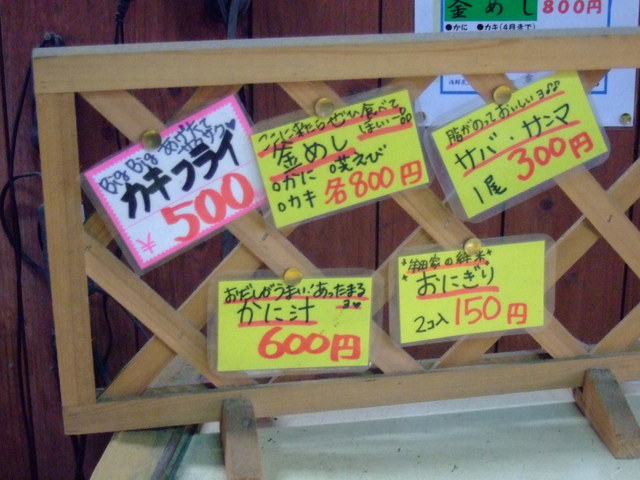 釜めし 800円
●かに ●カキ(4月まで)
Big Big あげたて
サクサク♥
カキフライ
大 500
ここに来たらぜひ食べて
ほしい一品
釜めし
○かに ○甘えび
○カキ 各800円
脂がのっておいしいヨ♪♪
サバ・サンマ
1尾 300円
おだしがうまい!あったまる
ヨ♥
かに汁
600円
おにぎり
2コ入 150円